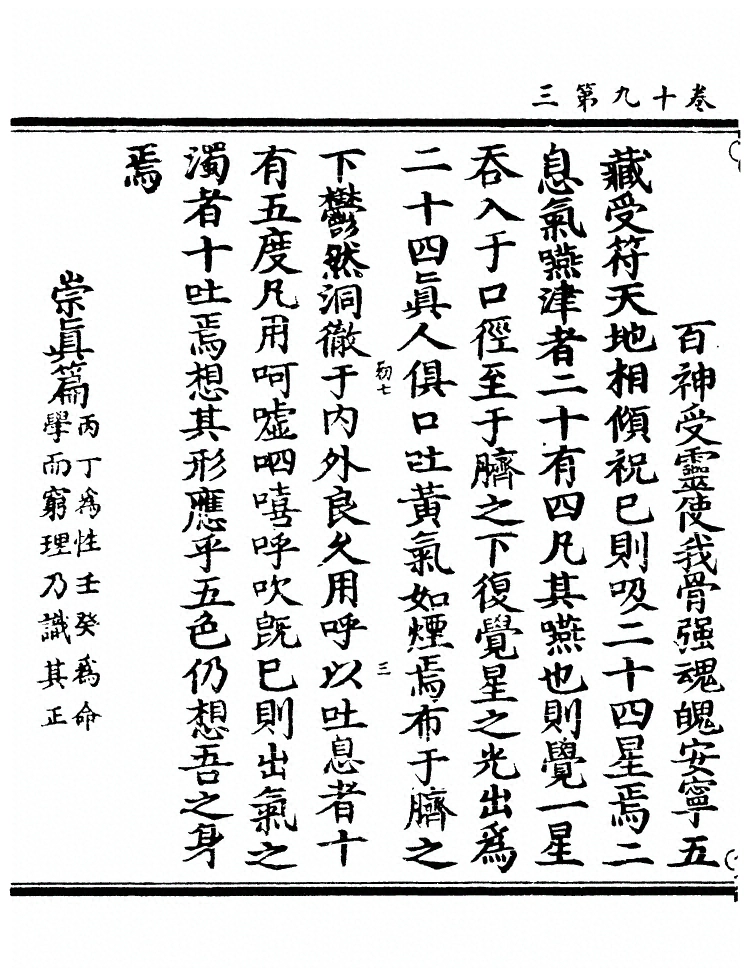 卷十九第三
百神受靈使我骨强魂魄安寧五
藏受符天地相傾祝已則吸二十四星焉二
息氣嚥津者二十有四凡其嚥也則覺一星
吞入于口徑至于臍之下復覺星之光出爲
二十四眞人俱口吐黃氣如煙焉布于臍之
下鬱然洞徹于内外良久用呼以吐息者十
有五度凡用呵噓呬嘻呼吹旣已則出氣之
濁者十吐焉想其形應乎五色仍想吾之身
焉
崇眞篇
丙丁爲性壬癸爲命
學而窮理乃識其正
三